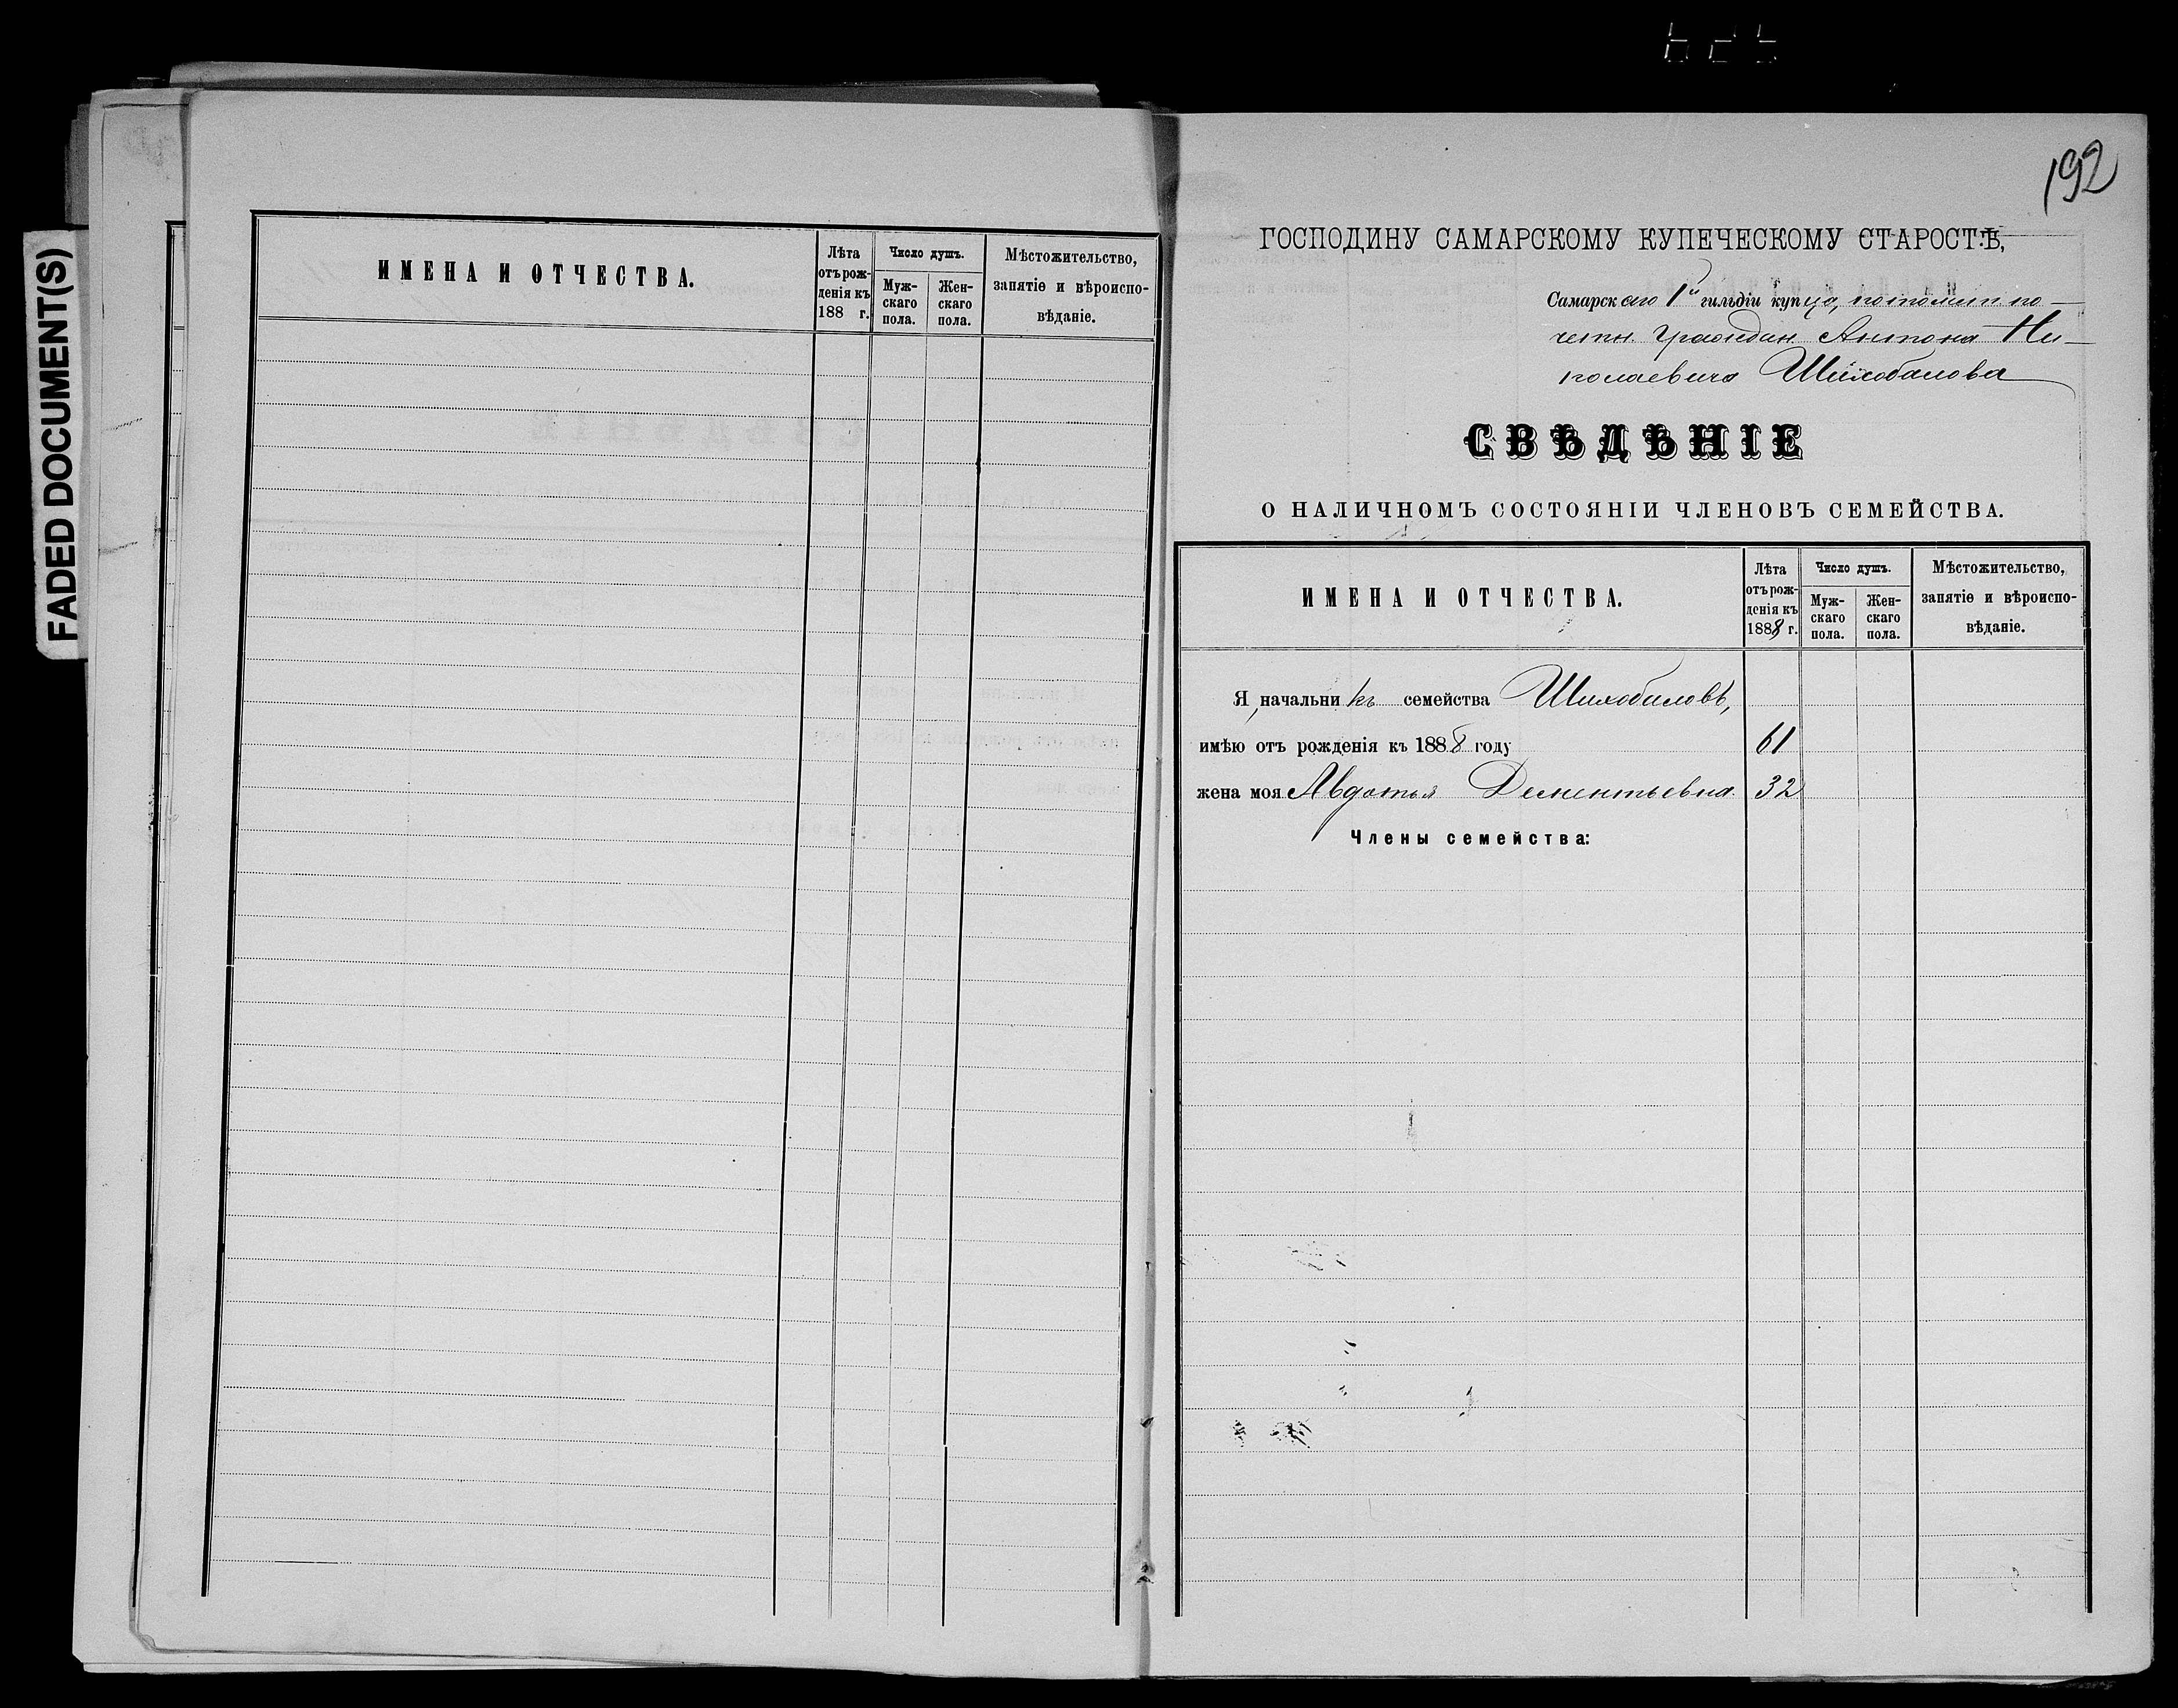 FADED DOCUMENT(S)
ИМЕНА И ОТЧЕСТВА.
Лѣта отъ рожденія къ 188 г.
Число душъ.
Мужскаго пола.
Женскаго пола.
Мѣстожительство, занятіе и вѣроисповѣданіе.
192
ГОСПОДИНУ САМАРСКОМУ КУПЕЧЕСКОМУ СТАРОСТѢ,
Самарскаго 1й гильдіи купца, потомст. по-
четн. граждан. Антона Ни-
колаевича Шихобалова
СВѢДѢНІЕ
О НАЛИЧНОМЪ СОСТОЯНІИ ЧЛЕНОВЪ СЕМЕЙСТВА.
ИМЕНА И ОТЧЕСТВА.
Лѣта отъ рожденія къ 1888 г.
Число душъ.
Мужскаго пола.
Женскаго пола.
Мѣстожительство, занятіе и вѣроисповѣданіе.
Я, начальникъ семейства Шихобаловъ,
имѣю отъ рожденія къ 1888 году 61
жена моя Авдотья Дементьевна. 32
Члены семейства: